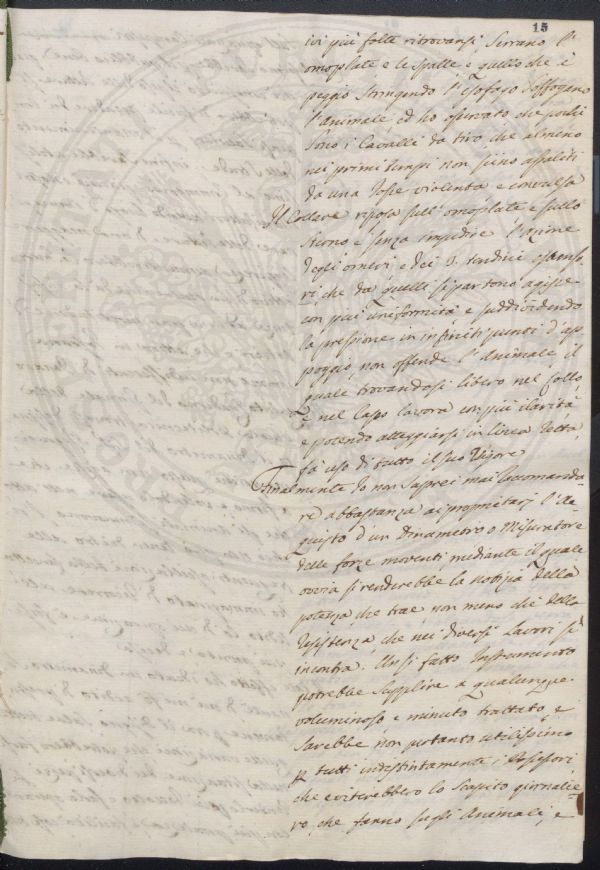 15
ivi più folte ritrovansi, Serrano l'
omoplate e le Spalle e quello che è
peggio Stringendo l'esofago Soffogano
l'animale, ed ho osservato che pochi
Sono i Cavalli da tiro che almeno
nei primi tempi non sieno assaliti
da una Tosse violenta e convulsa
Il Collare riposa sull'omoplate e sullo
Sterno e senza impedire l'azione
degli omeri e dei tendini
ri che da quelli si partono agisce
con più uniformità e suddividendo
la pressione in infiniti punti d'ap
poggio, non offende l'Animale, il
quale trovandosi libero nel Collo,
e nel Capo lavora con più ilarità
e potendo atteggiarsi in linea retta,
fà uso di tutto il suo Vigore
Finalmente Io non Saprei mai racomanda
re abbastanza ai proprietarj l'Ac
quisto d'un Dinametro o Misuratore
delle forze moventi, mediante il quale
ovvia si renderebbe la notizia della
potenza che trae non meno che della
resistenza, che nei diversi Lavori si
incontra. Un sì fatto Instrumento
potrebbe Supplire a qualunque
voluminoso e minuto trattato e
Sarebbe non pertanto utilissimo
p tutti indistintamente i Possessori,
che eviterebbero lo Scapito giornalie=
ro, che fanno sugli Animali, e